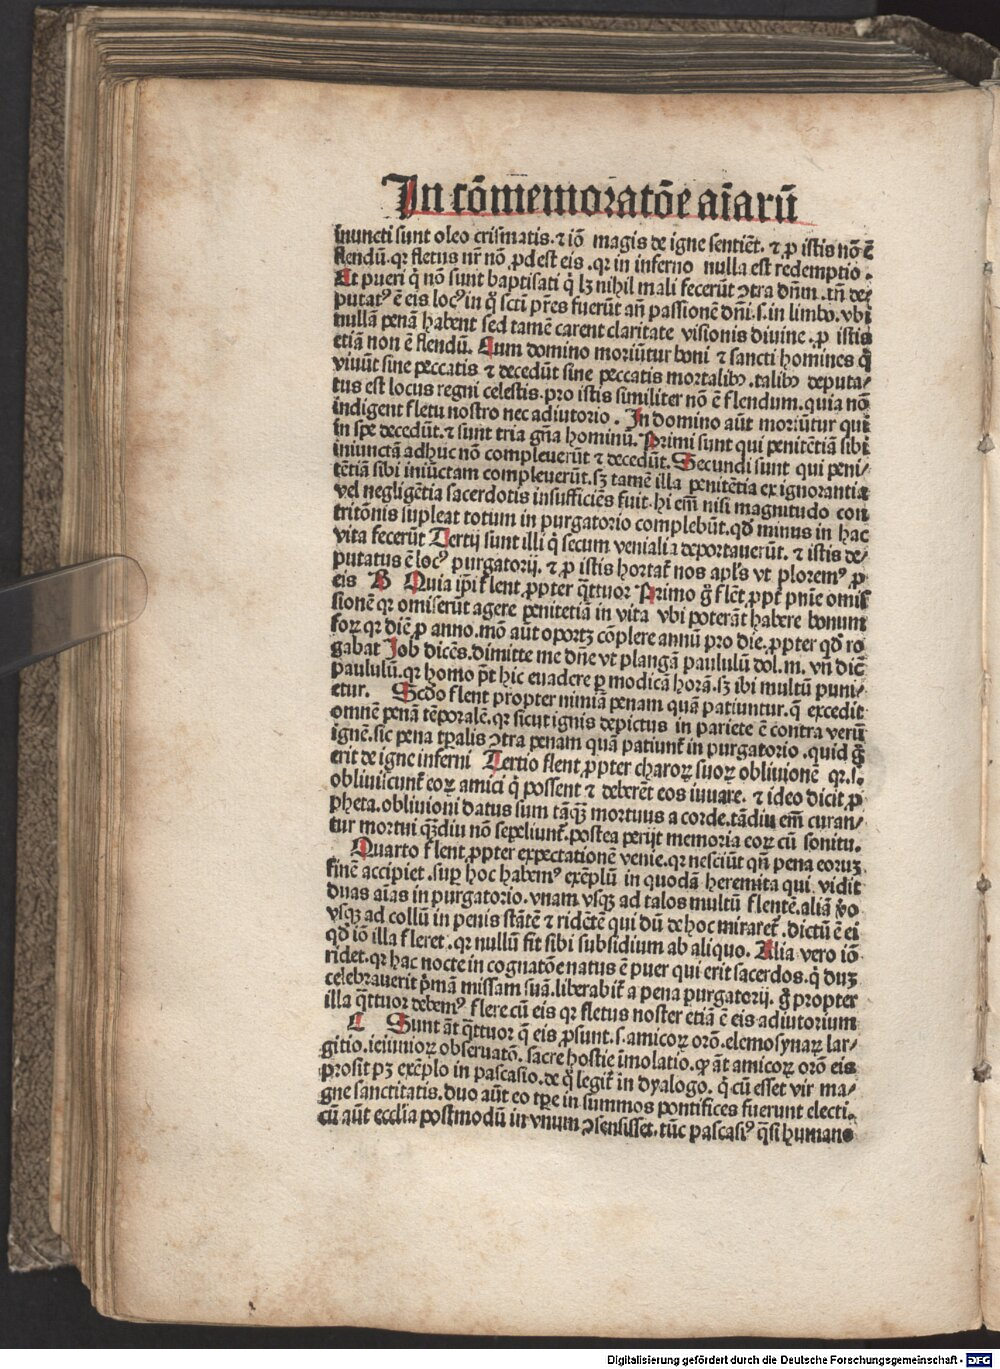 In cōmemoratōe aīarū
inuncti sunt oleo crismatis. ⁊ iō magis de igne sentiēt. ⁊ ꝓ istis nō ē
flendū. qꝛ fletus nr̄ nō ꝓdest eis. qꝛ in inferno nulla est redemptio.
At pueri q̇ nō sunt baptisati q̇ lꝫ nihil mali fecerūt ↄtra dn̄m. tn̄ de-
putatꝰ ē eis locꝰ in q̊ scti pr̄es fuerūt an̄ passionē dn̄i. s. in limbo. vbi
nullā penā habent sed tamē carent claritate visionis diuine. ꝓ istis
etiā non ē flendū. Cum domino moriūtur boni ⁊ sancti homines q̇
viuūt sine peccatis ⁊ decedūt sine peccatis mortalibꝫ. talibꝫ deputa/
tus est locus regni celestis. pro istis similiter nō ē flendum. quia nō
indigent fletu nostro nec adiutorio. In domino aūt moriūtur qui
in spe decedūt. ⁊ sunt tria gn̄a hominū. Primi sunt qui penitētiā sibi
iniunctā adhuc nō compleuerūt ⁊ decedūt. Secundi sunt qui peni/
tētiā sibi iniūctam compleuerūt. sꝫ tamē illa penitētia ex ignorantia
vel negligētia sacerdotis insufficiēs fuit. hi em̄ nisi magnitudo con
tritōnis supleat totum in purgatorio complebūt. qd̄ minus in hac
vita fecerūt Tertij sunt illi q̇ secum venialia deportauerūt. ⁊ istis de-
putatus ē locꝰ purgatorij. ⁊ ꝓ istis hortat᷑ nos apl̄s vt ploremꝰ ꝓ
eis B Quia ip̄i flent ꝓpter q̄ttuor Primo g̊ flēt ꝓpt᷑ pn̄ie omis
sionē qꝛ omiserūt agere penitetiā in vita vbi poterāt habere bonum
forꝫ qꝛ diē ꝓ anno. mō aūt oportꝫ cōplere annū pro die. ꝓpter qd̄ ro
gabat Job dicēs. dimitte me dn̄e vt plangā paululū dol. m. vn̄ dic̄
paululū. qꝛ homo p̄t hic euadere ꝑ modicā horā. sꝫ ibi multū puni/
etur. Scd̄o flent propter nimiā penam quā patiuntur. q̄ excedit
omnē penā tēporalē. qꝛ sicut ignis depictus in pariete ē contra verū
ignē. sic pena tꝑalis ↄtra penam quā patiunt᷑ in purgatorio. quid g̊
erit de igne inferni Tertio flent ꝓpter charoꝝ suoꝝ obliuionē qꝛ. s.
obliuiscunt᷑ eoꝝ amici q̇ possent ⁊ deberēt eos iuuare. ⁊ ideo dicit ꝓ
pheta. obliuioni datus sum tāqꝫ mortuus a corde. tādiu em̄ curan/
tur mortui qꝫdiu nō sepeliunt᷑. postea perijt memoria eoꝝ cū sonitu.
Quarto flent ꝓpter expectationē venie. qꝛ nesciūt qn̄ pena eorum
finē accipiet. suꝑ hoc habemꝰ exēplū in quodā heremita qui vidit
duas aīas in purgatorio. vnam vsqꝫ ad talos multū flentē. aliā v̊o
vsqꝫ ad collū in penis stātē ⁊ ridētē qui dū de hoc miraret᷑. dictū ē ei
qd̄ iō illa fleret. qꝛ nullū fit sibi subsidium ab aliquo. Alia vero iō
ridet. qꝛ hac nocte in cognatōe natus ē puer qui erit sacerdos. q̇ dum
celebrauerit p̓mā missam suā. liberabit᷑ a pena purgatorij. g̊ propter
illa q̄ttuor debemꝰ flere cū eis qꝛ fletus noster etiā ē eis adiutorium
C Sunt āt q̄ttuor q̄ eis ꝓsunt. s. amicoꝝ orō. elemosynaꝝ lar/
gitio. ieiunioꝝ obseruatō. sacre hostie īmolatio. ꝙ āt amicoꝝ orō eis
prosit pꝫ exēplo in pascasio. de q̊ legit᷑ in dyalogo. q̇ cū esset vir ma/
gne sanctitatis. duo aūt eo tꝑe in summos pontifices fuerunt electi.
cū aūt ecclia postmodū in vnum ↄsensisset. tūc pascasiꝰ q̄si humano
Digitalisierung gefördert durch die Deutsche Forschungsgemeinschaft - DFG